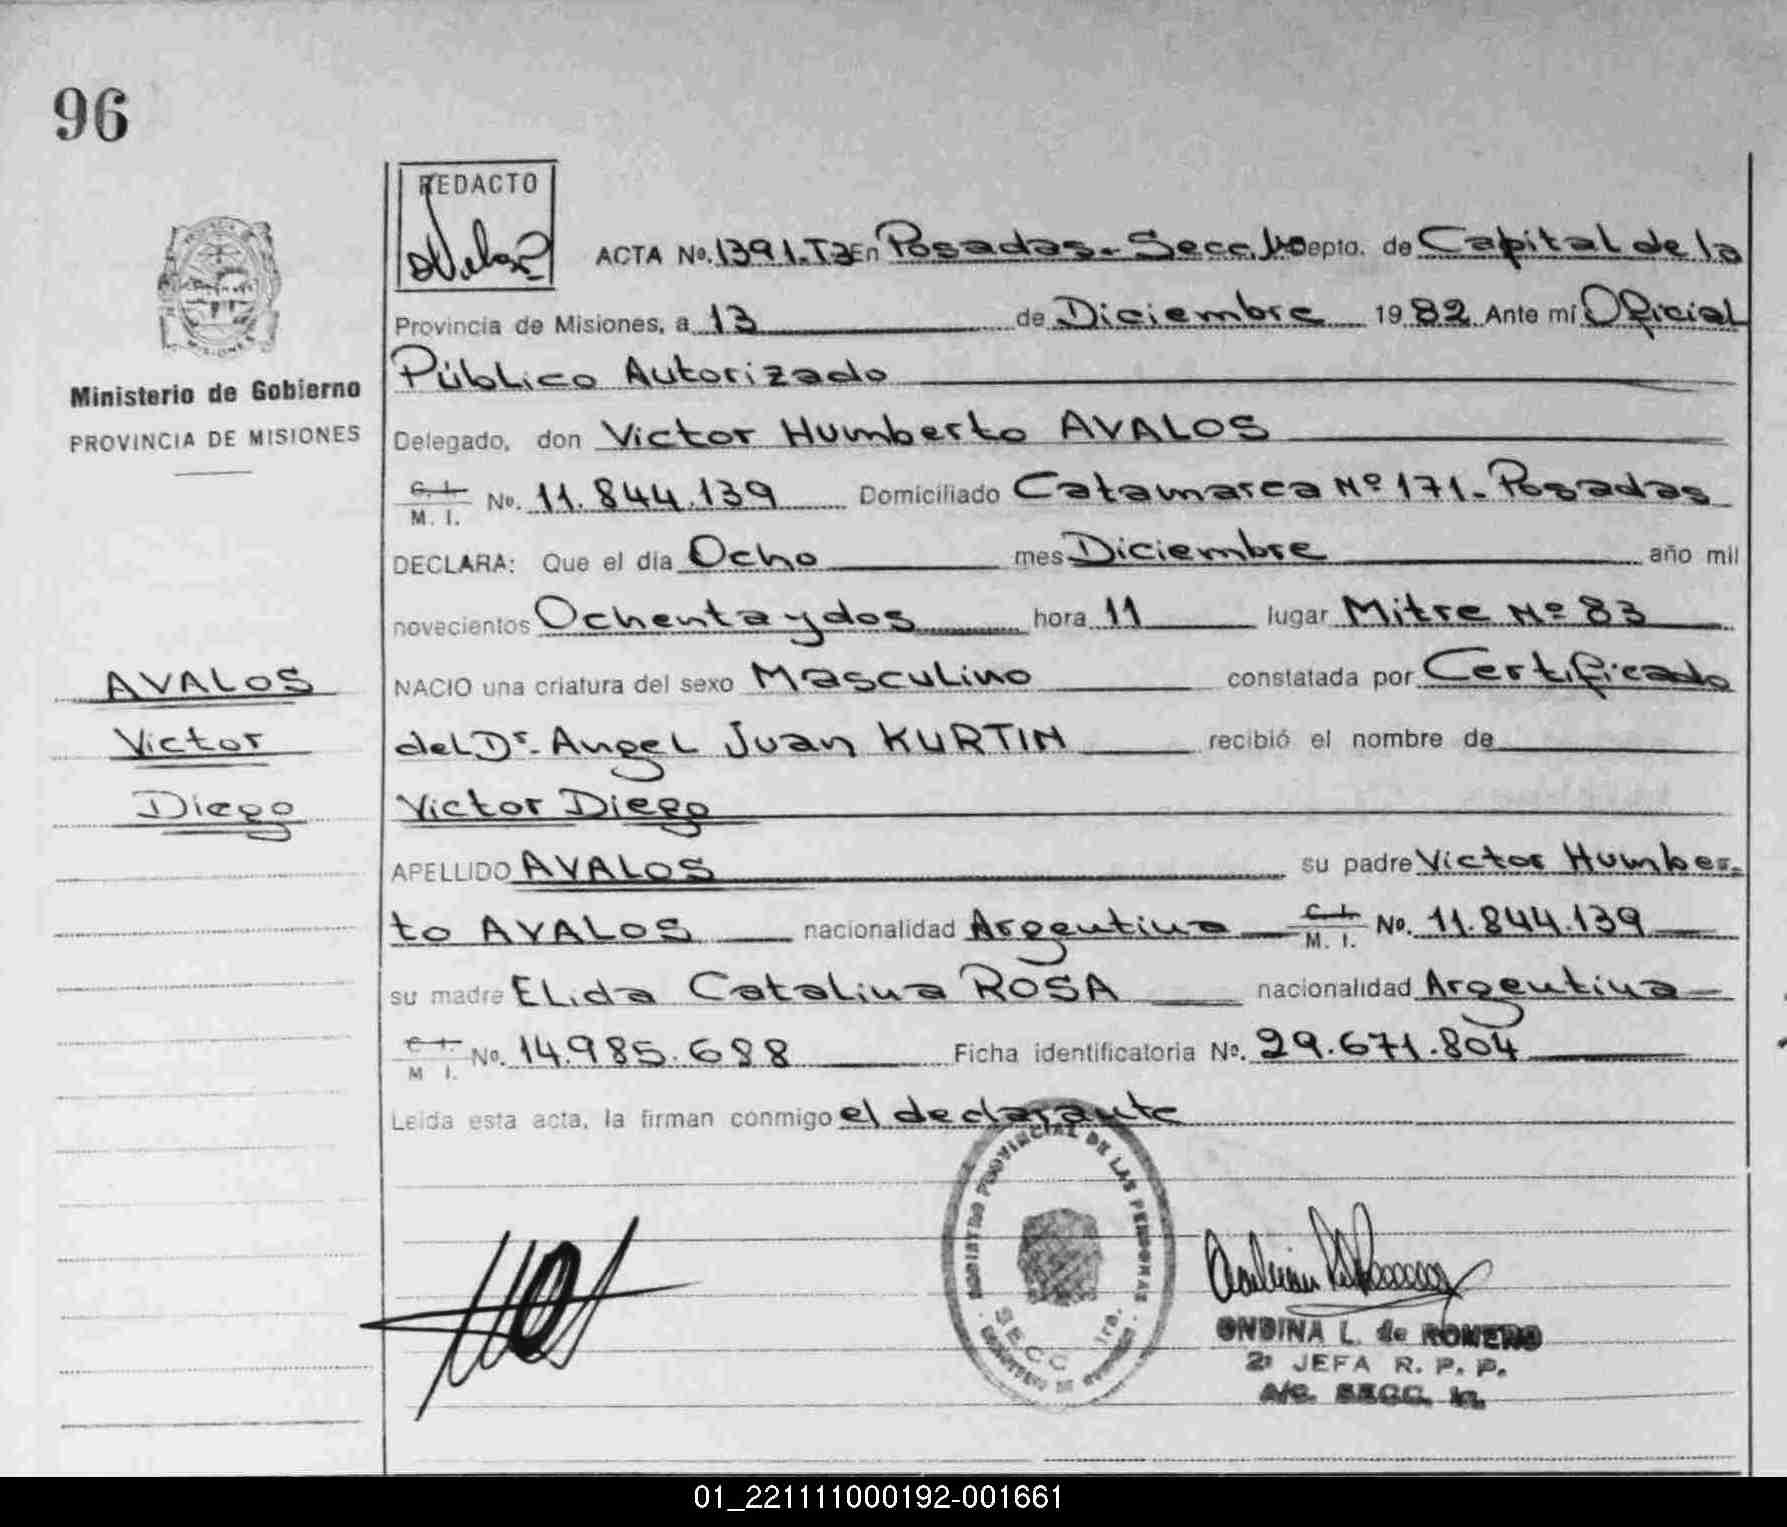 96
REDACTO
MISIONES
Ministerio de Gobierno
PROVINCIA DE MISIONES
ACTA Nº. 1391.T3 En Posadas - Secc. 1ª Depto. de Capital de la
Provincia de Misiones, a 13 de Diciembre 1982 Ante mí Oficial
Público Autorizado
Delegado, don Victor Humberto AVALOS
C. I. M. I. Nº. 11.844.139 Domiciliado Catamarca Nº 171 - Posadas
DECLARA: Que el día Ocho mes Diciembre año mil
novecientos Ochenta y dos hora 11 lugar Mitre Nº 83
NACIO una criatura del sexo Masculino constatada por Certificado
del Dr. Angel Juan KURTIN recibió el nombre de
Victor Diego
APELLIDO AVALOS su padre Victor Humber-
to AVALOS nacionalidad Argentina C. I. M. I. Nº. 11.844.139
su madre Elida Catalina ROSA nacionalidad Argentina
C. I. M. I. Nº. 14.985.688 Ficha identificatoria Nº. 29.671.804
Leída esta acta, la firman conmigo el declarante
AVALOS
Victor
Diego
REGISTRO PROVINCIAL DE LAS PERSONAS
SECC. 1ra.
ONDINA L. de ROMERO
2ª JEFA R. P. P.
A/C. SECC. 1a.
01_221111000192-001661